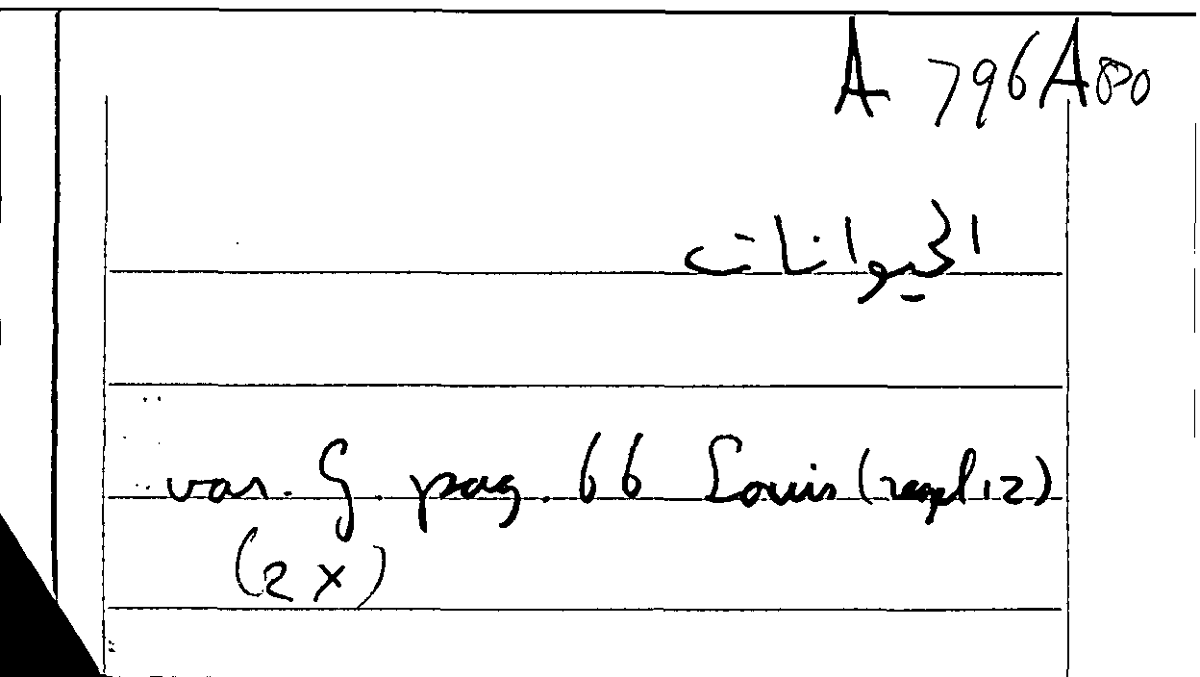 A 796A80
الحيوانات
var. G. pag. 66 Louis (
(2 x)